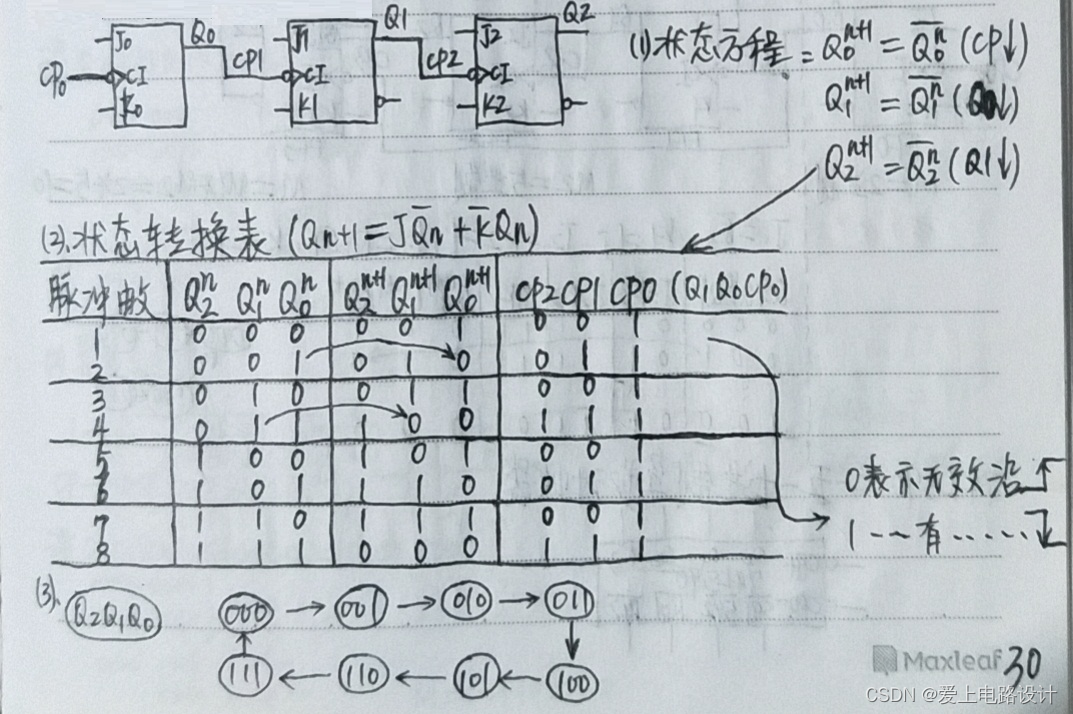 J0 Q0 J1 Q1 J2 Q2
CP0 CI CP1 CI CP2 CI
K0 K1 K2
(1) 状态方程: Q0^{n+1} = \overline{Q0^n} (CP↓)
Q1^{n+1} = \overline{Q1^n} (Q0↓)
Q2^{n+1} = \overline{Q2^n} (Q1↓)
(2).状态转换表 (Qn+1 = J\overline{Q}n + \overline{K}Qn)
脉冲数 Q2^n Q1^n Q0^n Q2^{n+1} Q1^{n+1} Q0^{n+1} CP2 CP1 CP0 (Q1 Q0 CP0)
1 0 0 0 0 0 1 0 0 1
2 0 0 1 0 1 0 0 1 1
3 0 1 0 0 1 1 0 0 1
4 0 1 1 1 0 0 1 1 1
5 1 0 0 1 0 1 0 0 1
6 1 0 1 1 1 0 0 1 1
7 1 1 0 1 1 1 0 0 1
8 1 1 1 0 0 0 1 1 1
0表示无效沿↑
1 -- 有 ····· ↓
(3). Q2Q1Q0 000 → 001 → 010 → 011
111 ← 110 ← 101 ← 100
Maxleaf 30
CSDN @爱上电路设计